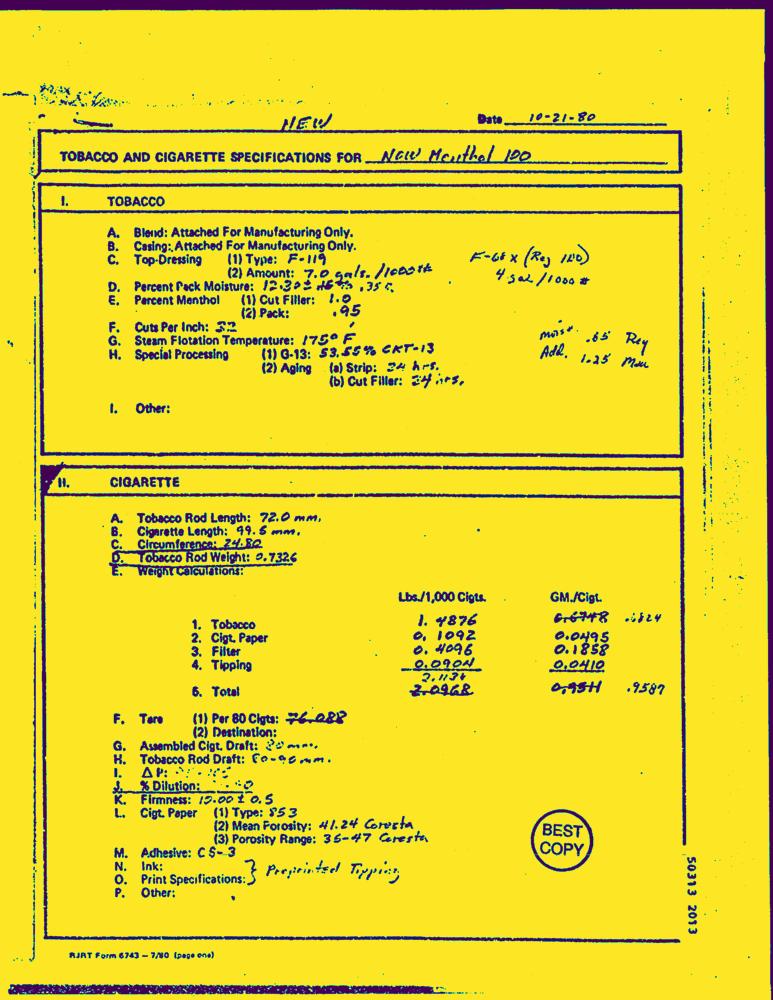 NEW
Date 10-21-80
TOBACCO AND CIGARETTE SPECIFICATIONS FOR New Menthol 100
I. TOBACCO
A. Blend: Attached For Manufacturing Only.
B. Casing: Attached For Manufacturing Only.
C. Top-Dressing (1) Type: F-119
F-68 X (Reg 100)
(2) Amount: 7.0 gals. /1000#
4 gal/1000#
D. Percent Pack Moisture: 12.30±
E. Percent Menthol (1) Cut Filler: 1.0
(2) Pack: .95
F. Cuts Per Inch: 32
G. Steam Flotation Temperature: 175° F
moist. .65 Reg
H. Special Processing (1) G-13: 53.55% CKT-13
Add. 1.25 Men
(2) Aging (a) Strip: 24 hrs.
(b) Cut Filler: 24 hrs.
I. Other:
II. CIGARETTE
A. Tobacco Rod Length: 72.0 mm.
B. Cigarette Length: 99.5 mm.
C. Circumference: 24.80
D. Tobacco Rod Weight: 0.7326
E. Weight Calculations:
Lbs./1,000 Cigts. GM./Cigt.
1. Tobacco 1.4876 0.6748 .6824
2. Cigt. Paper 0.1092 0.0495
3. Filter 0.4096 0.1858
4. Tipping 0.0904 0.0410
2.1136
5. Total 2.0968 0.9511 .9587
F. Tare (1) Per 80 Cigts: 76.088
(2) Destination:
G. Assembled Cigt. Draft: mm.
H. Tobacco Rod Draft: 80-90 mm.
I. Δ P:
J. % Dilution:
K. Firmness: 10.00 ± 0.5
L. Cigt. Paper (1) Type: 853
(2) Mean Porosity: 41.24 Coresta
(3) Porosity Range: 35-47 Coresta
M. Adhesive: CS-3
N. Ink:
O. Print Specifications: } Preprinted Tipping
P. Other:
BEST
COPY
50313 2013
RJRT Form 6743 — 7/80 (page one)